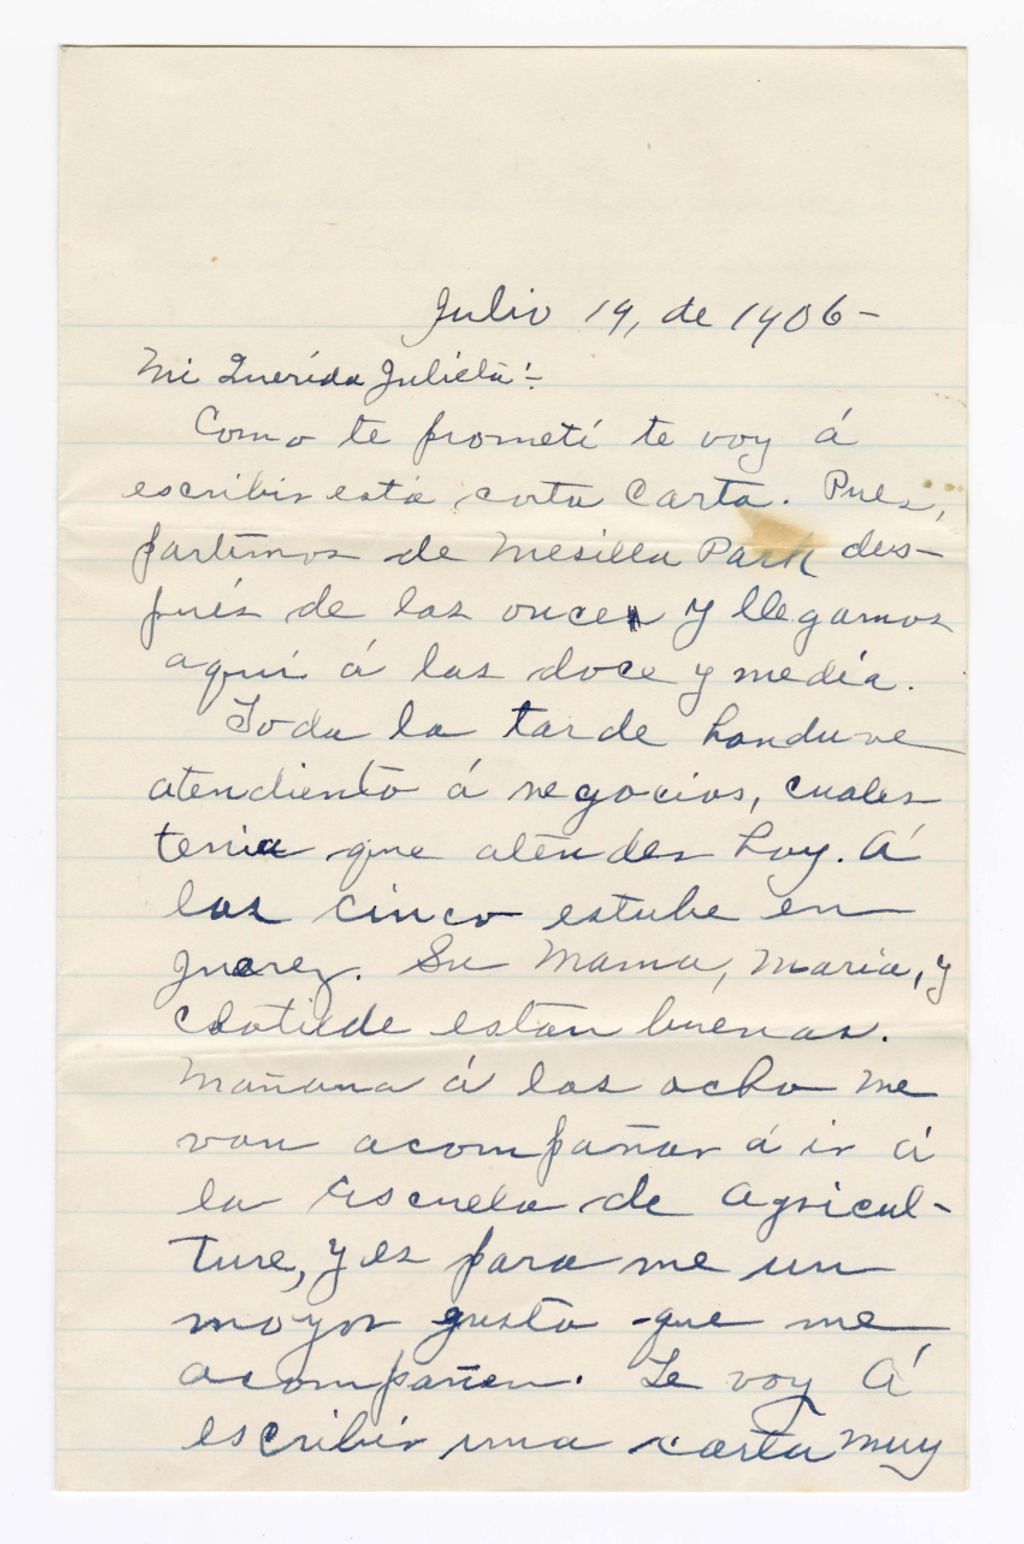 Julio 19, de 1906-
Mi Querida Julieta:-
Como te prometí te voy á
escribir esta corta Carta. Pues,
partimos de Mesilla Park des-
pués de las once y llegamos
aquí á las doce y media.
Toda la tarde handuve
atendiento á negocios, cuales
tenia que atender hoy. Á
las cinco estube en
Juarez. Su Mama, Maria, y
Clotilde estan buenas.
Mañana á las ocho me
van acompañar á ir á
la Escuela de Agricul-
ture, y es para me un
mayor gusto que me
acompañen. Te voy Á
escribir una carta muy